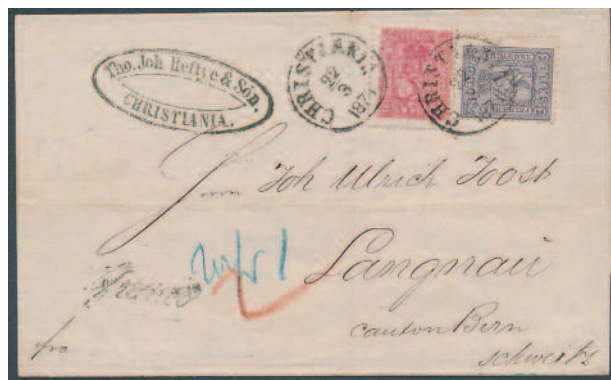 Tho. Joh Heftye & Sön.
CHRISTIANIA.
CHRISTIANIA
26
3
1871
CHRISTIANIA
26
3
Herrn Joh Ulrich Joost
Langnau
canton Bern
schweitz
Franco
fro